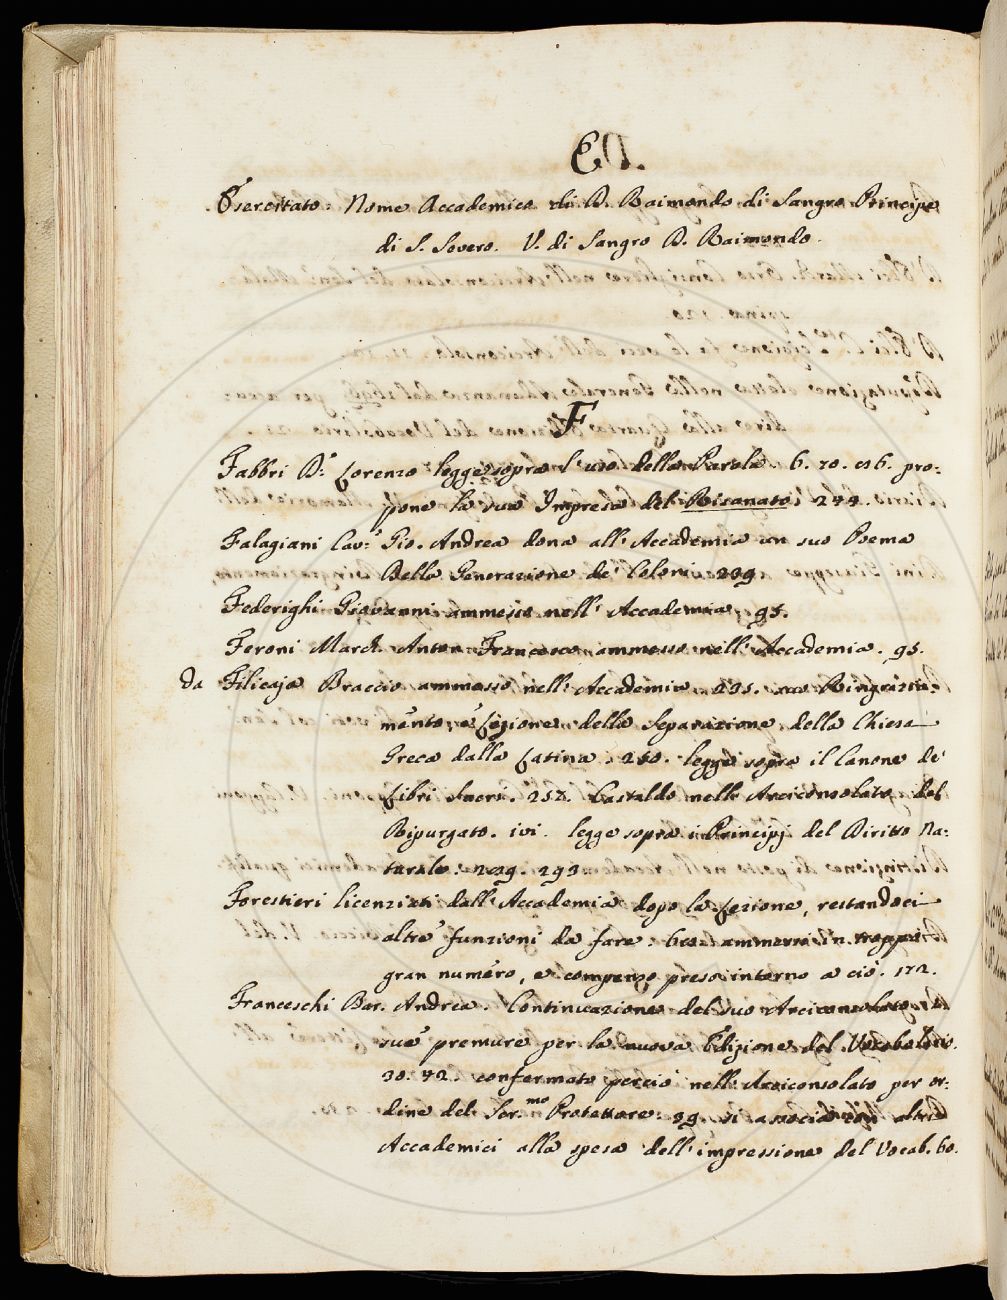 E
Esercitato. Nome Accademico di D. Raimondo di Sangro Principe
di S. Severo. V. di Sangro D. Raimondo.
F
Fabbri Dr. Lorenzo legge sopra l'uso della Parola. 6. 70. es 6. pro=
pone la sua Impresa del Risanato. 244.
Falagiani Cav.r Gio. Andrea dona all' Accademia un suo Poema
Della Generazione de' Colori. 239.
Federighi Giovanni ammesso nell' Accademia. 95.
Feroni March. Anton Francesco ammesso nell' Accademia. 95.
da Filicaja Braccio ammesso nell' Accademia. 235. suo Ringrazia=
mento, e Lezione della Separazione della Chiesa
Greca dalla Latina. 250. legge sopra il Canone de'
Libri Sacri. 257. Castaldo nell' Arciconsolato del
Ripurgato. ivi. legge sopra i Principj del Diritto Na=
turale. 293
Forestieri licenziati dall' Accademia dopo la Lezione, restandoci
altre funzioni da fare. ammessi in troppo
gran numero, e compenso preso intorno a ciò. 172.
Franceschi Bar. Andrea. Continuazione del suo Arciconsolato e
sue premure per la nuova Edizione del Vocabolario.
30. 42. confermato perciò nell' Arciconsolato per or=
dine del Ser.mo Protettore. 39. si associa con altri
Accademici alla spesa dell' impressione del Vocab. 60.